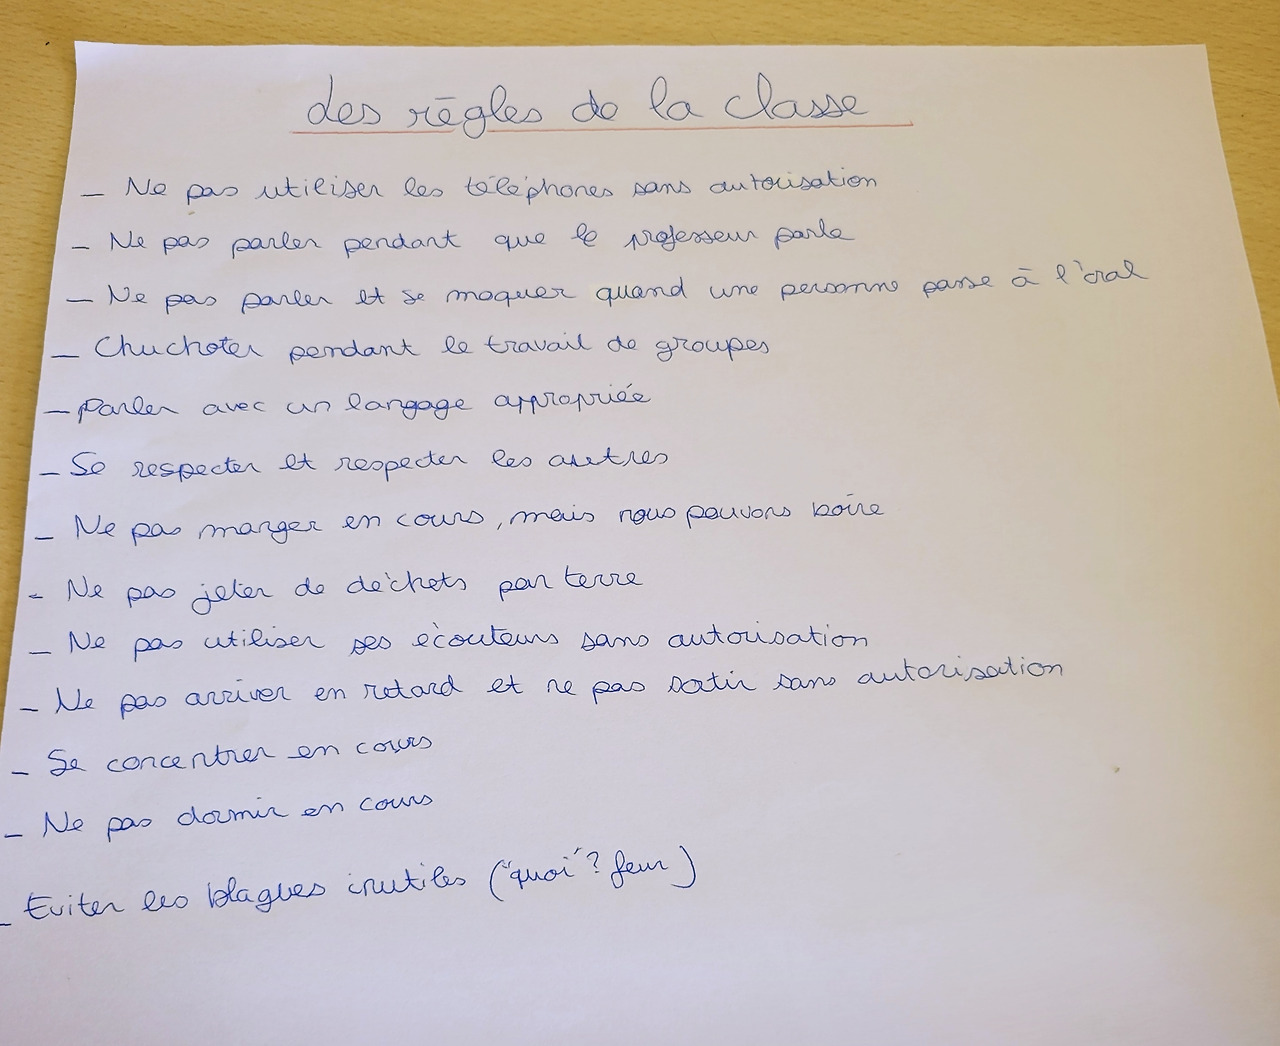 des règles de la classe
- Ne pas utiliser les téléphones sans autorisation
- Ne pas parler pendant que le professeur parle
- Ne pas parler et se moquer quand une personne passe à l'oral
- Chuchoter pendant le travail de groupes
- Parler avec un langage appropriée
- Se respecter et respecter les autres
- Ne pas manger en cours, mais nous pouvons boire
- Ne pas jeter de déchets par terre
- Ne pas utiliser ses écouteurs sans autorisation
- Ne pas arriver en retard et ne pas sortir sans autorisation
- Se concentrer en cours
- Ne pas dormir en cours
- Eviter les blagues inutiles ("quoi"? feur)